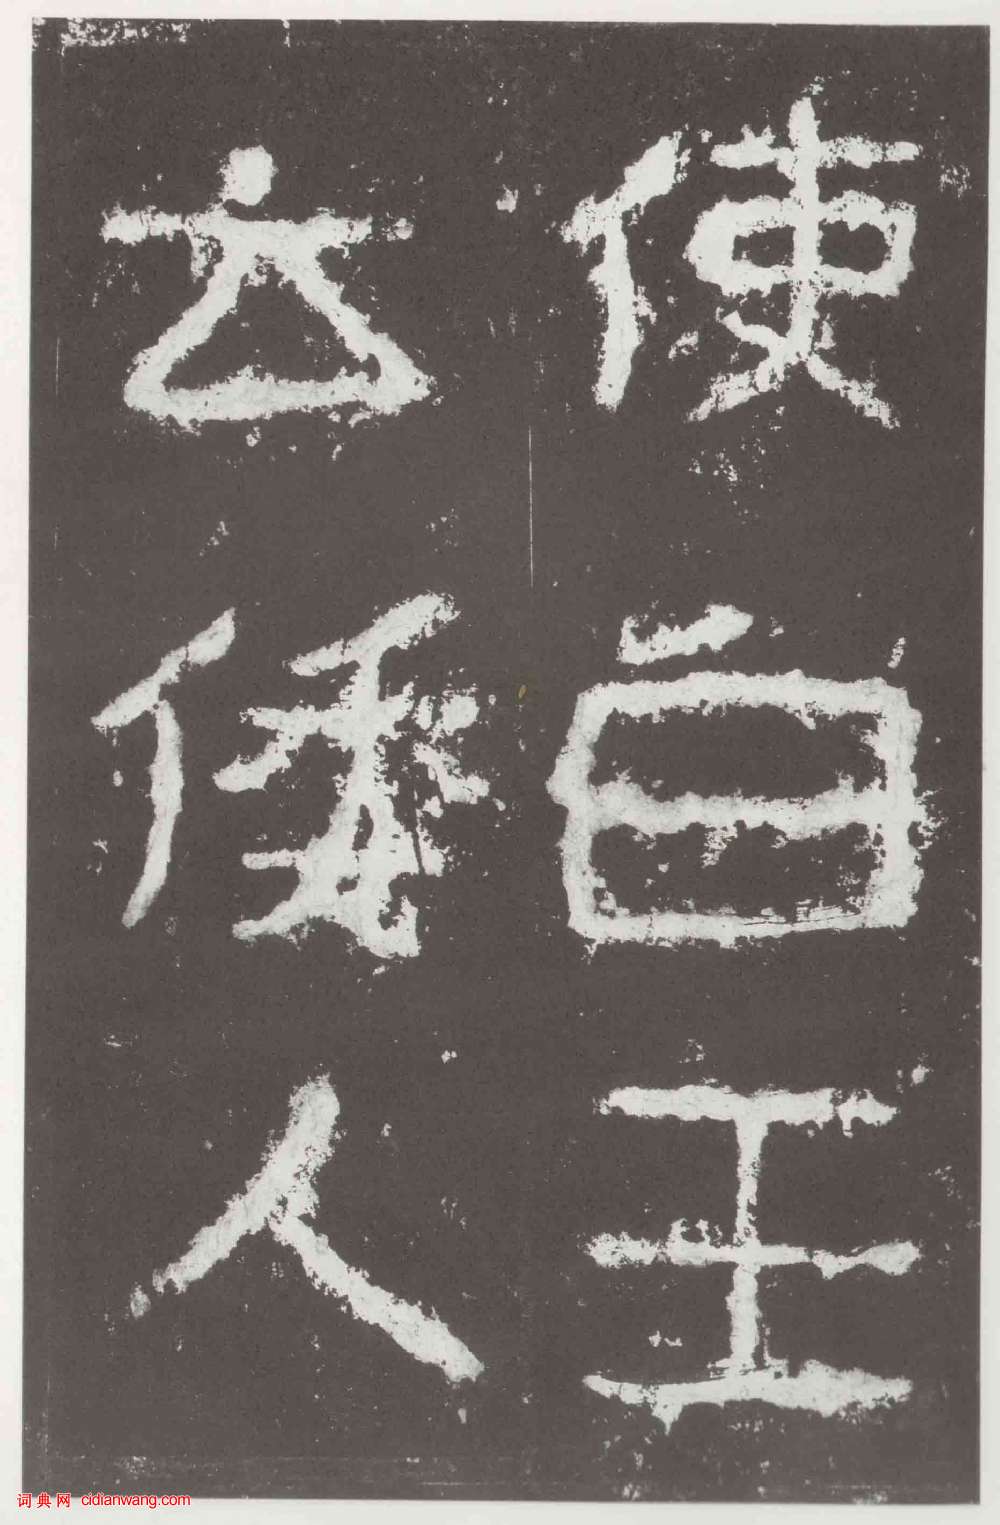 使白王
云倭人
词典网 cidianwang.com